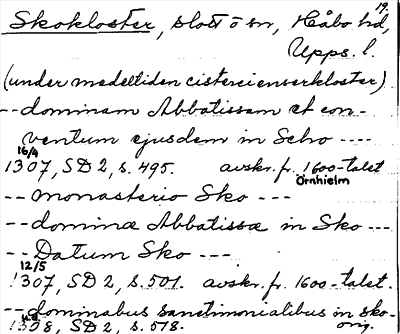 19.
Skokloster, slott o sn, Håbo hd,
Upps. l.
(under medeltiden cistercienserkloster)
-- dominam Abbatissam et con-
ventum ejusdem in Scho ----
16/4
1307, SD 2, s. 495. avskr. fr. 1600-talet
Örnhielm
-- monasterio Sko ---
-- dominæ Abbatissæ in Sko ---
-- Datum Sko ---
12/5
1307, SD 2, s. 501. avskr. fr. 1600-talet.
-- dominabus sanctimonialibus in sko-
u.d.
1308, SD 2, s. 518. orig.